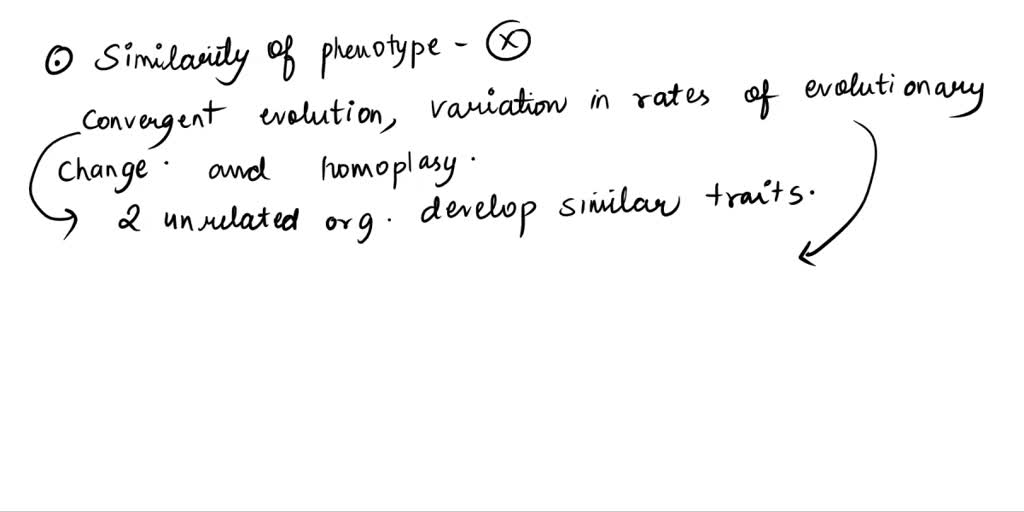 ⊙ Similarity of phenotype - ⓧ
convergent evolution, variation in rates of evolutionary
change. and homoplasy.
→ 2 unrelated org. develop similar traits.